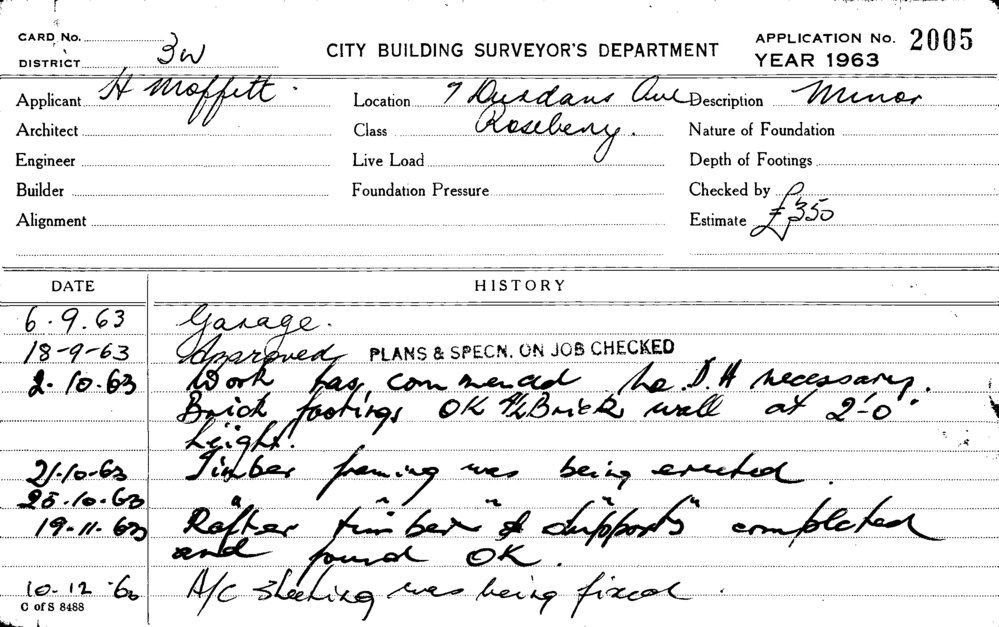 CARD No.
DISTRICT 3W
CITY BUILDING SURVEYOR'S DEPARTMENT
APPLICATION No. 2005
YEAR 1963
Applicant H Moffett.
Location 7 Dursdans Ave
Description Minor
Architect
Class Rosebery.
Nature of Foundation
Engineer
Live Load
Depth of Footings
Builder
Foundation Pressure
Checked by
Alignment
Estimate £350
DATE HISTORY
6.9.63 Garage.
18-9-63 Approved PLANS & SPECN. ON JOB CHECKED
2.10.63 Work has commenced no D.H necessary.
Brick footings OK 4½ Brick wall at 2'-0"
height.
21.10.63 Timber framing was being erected.
25.10.63 " " " "
19.11.63 Rafter timber & supports completed
and found OK.
10.12.63 A/C sheeting was being fixed.
C of S 8488